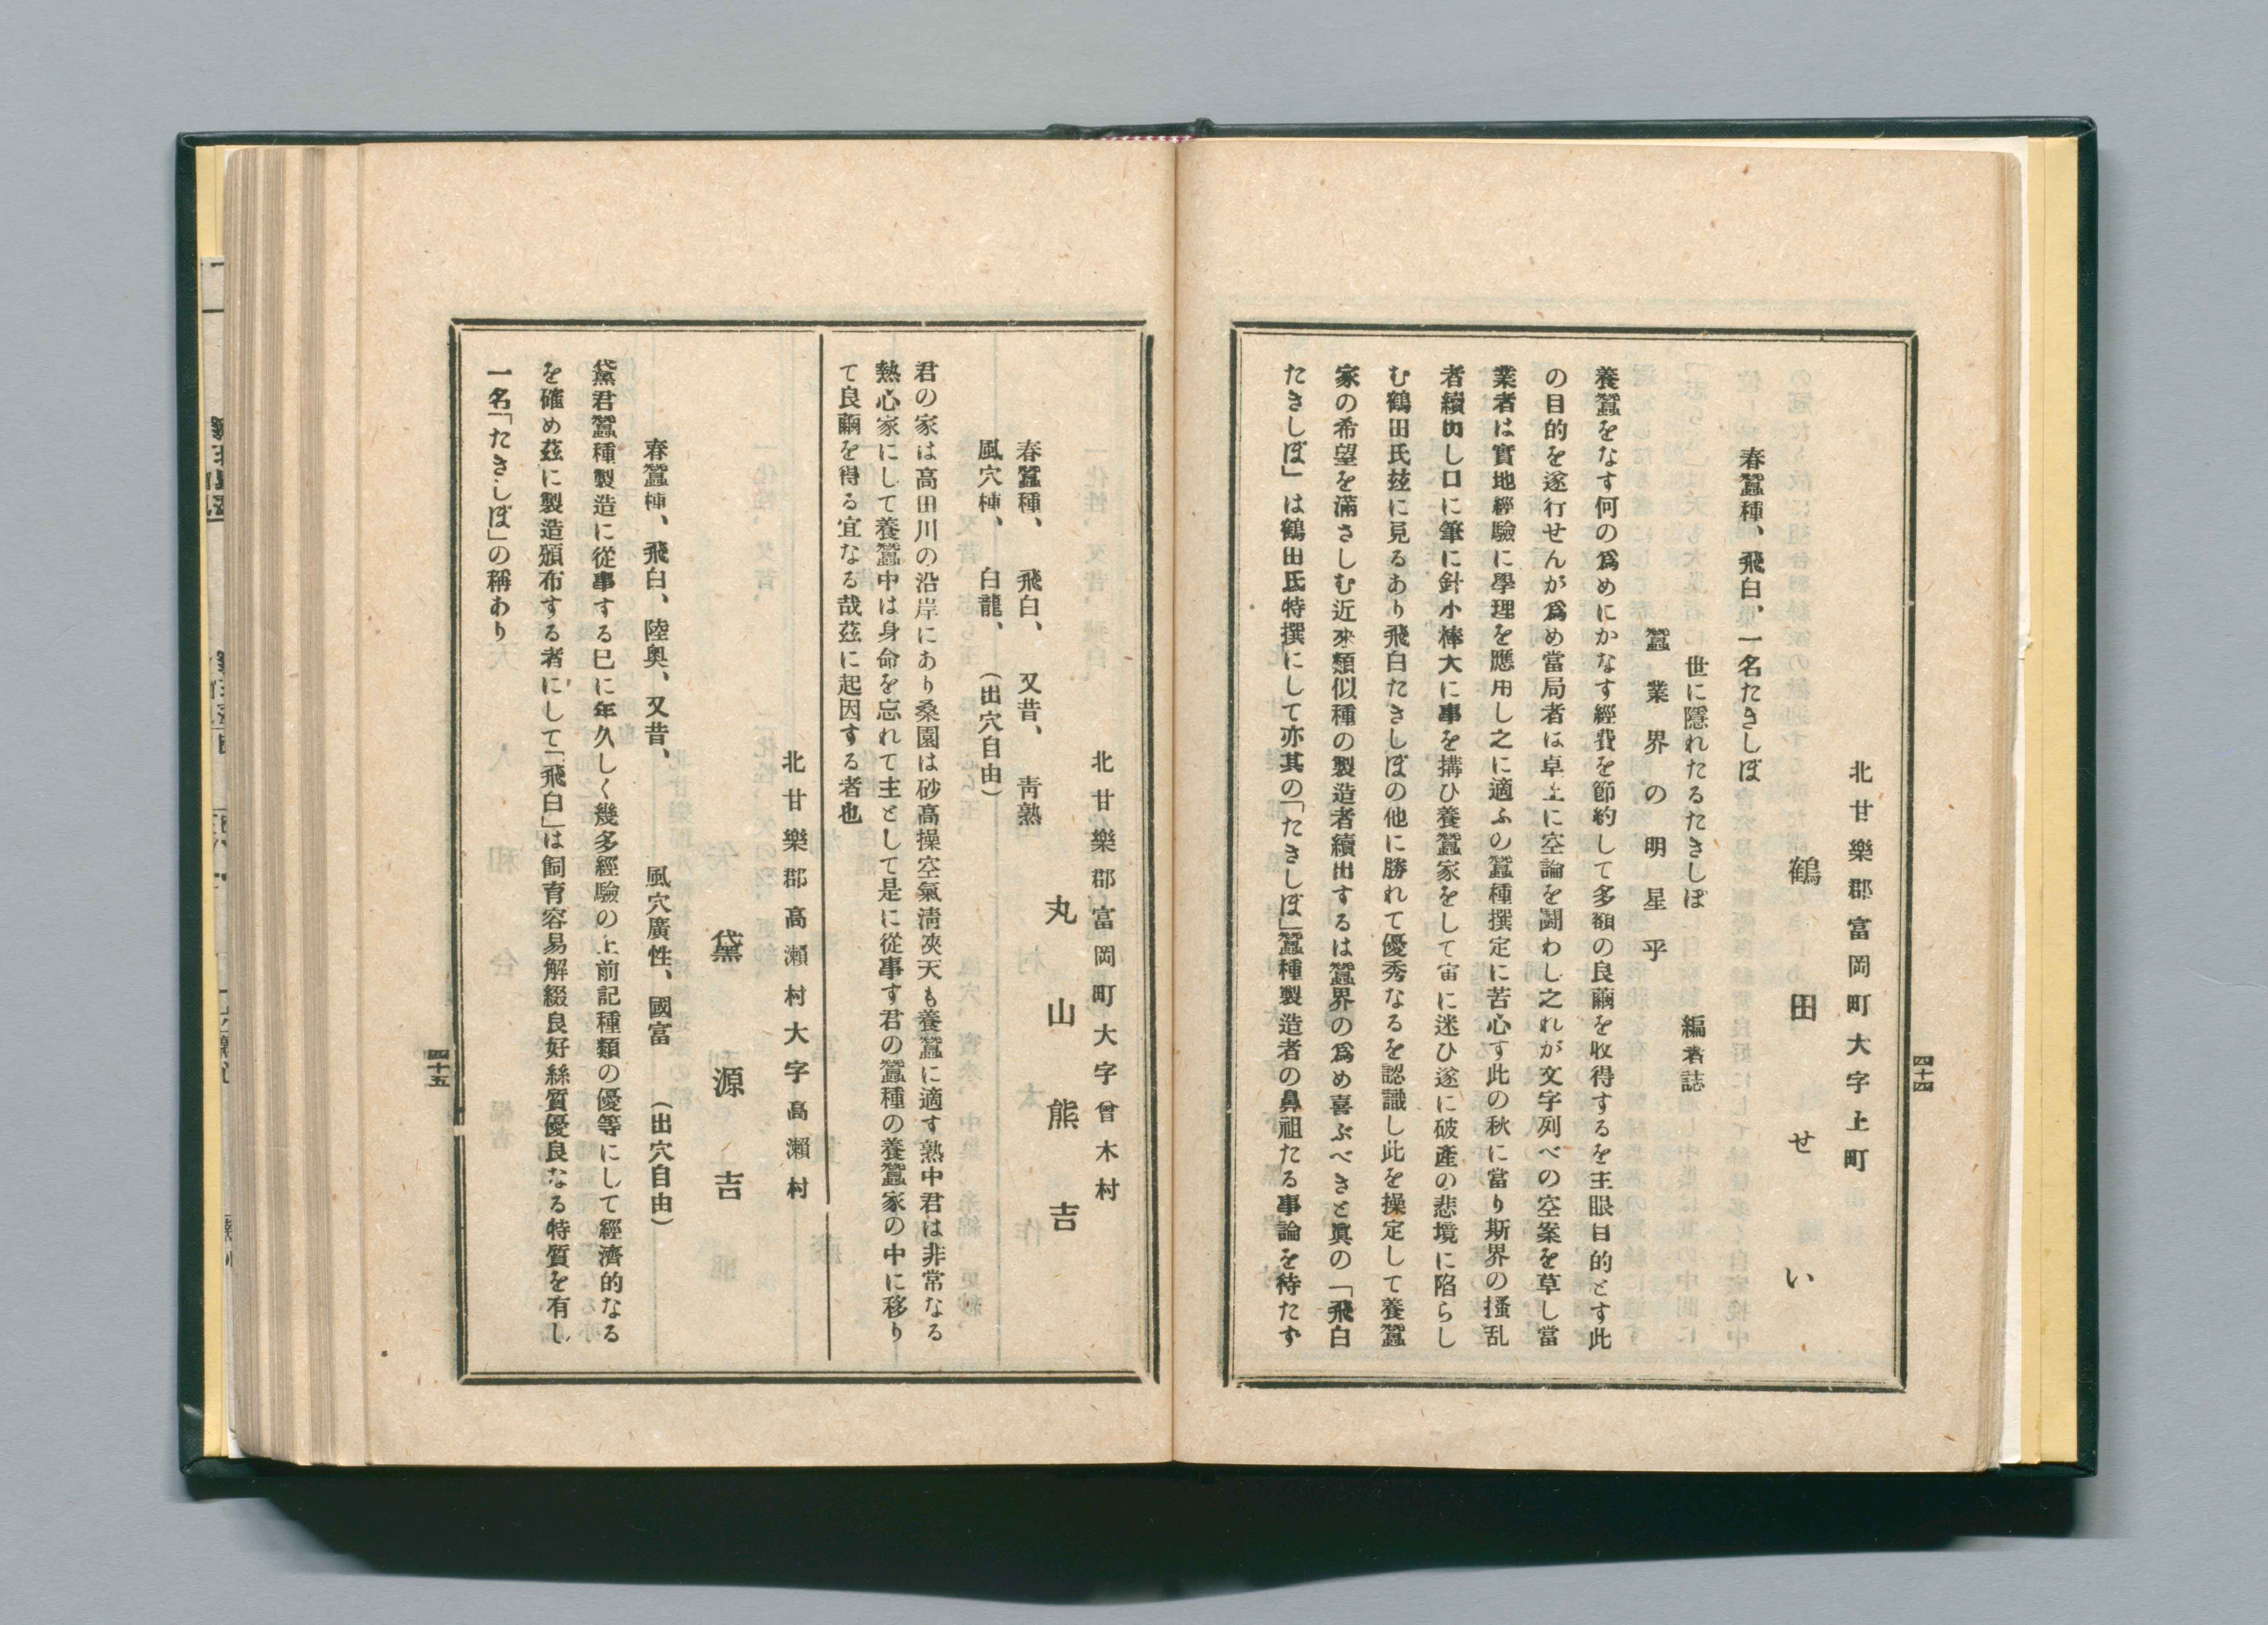 北甘樂郡富岡町大字上町
鶴田せい
春蠶種、飛白、一名たきしぼ
世に隱れたるたきしぼ 編者誌
蠶業界の明星乎
養蠶をなす何の爲めにかなす經費を節約して多額の良繭を收得するを主眼目的とす此
の目的を遂行せんが爲め當局者は卓上に空論を鬪わし之れが文字列べの空案を草し當
業者は實地經驗に學理を應用し之に適ふの蠶種撰定に苦心す此の秋に當り斯界の掻乱
者續出し口に筆に針小棒大に事を搆ひ養蠶家をして宙に迷ひ遂に破產の悲境に陷らし
む鶴田氏玆に見るあり飛白たきしぼの他に勝れて優秀なるを認識し此を操定して養蠶
家の希望を滿さしむ近來類似種の製造者續出するは蠶界の爲め喜ぶべきと眞の「飛白
たきしぼ」は鶴田氏特撰にして亦其の「たきしぼ」蠶種製造者の鼻祖たる事論を待たず
四十四
北甘樂郡富岡町大字曾木村
丸山熊吉
春蠶種、飛白、又昔、靑熟
風穴種、白龍、(出穴自由)
君の家は高田川の沿岸にあり桑園は砂高操空氣淸爽天も養蠶に適す熟中君は非常なる
熱心家にして養蠶中は身命を忘れて主として是に從事す君の蠶種の養蠶家の中に移り
て良繭を得る宜なる哉茲に起因する者也
北甘樂郡高瀨村大字高瀨村
黛源吉
春蠶種、飛白、陸奧、又昔、
風穴廣性、國富 (出穴自由)
黛君蠶種製造に從事する巳に年久しく幾多經驗の上前記種類の優等にして經濟的なる
を確め茲に製造頒布する者にして「飛白」は飼育容易解綴良好絲質優良なる特質を有し
一名「たきしぼ」の稱あり
四十五